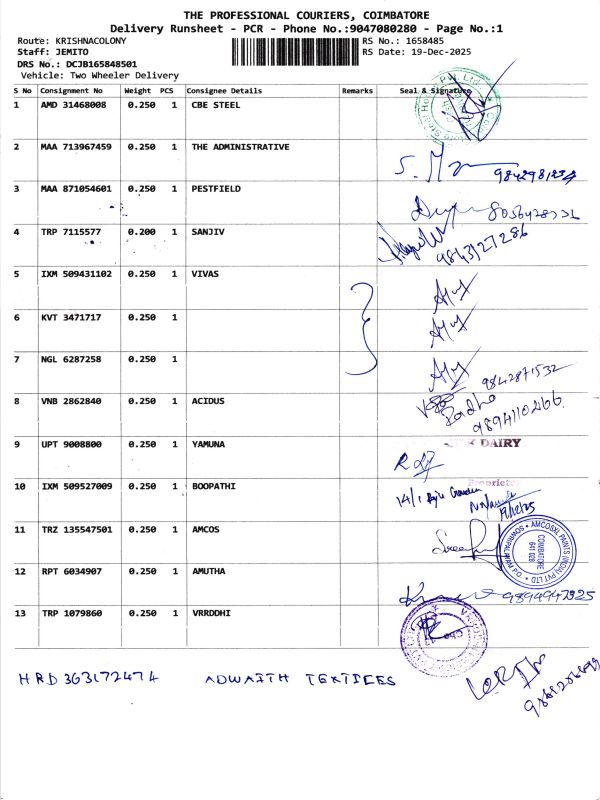 THE PROFESSIONAL COURIERS, COIMBATORE
Delivery Runsheet - PCR - Phone No.:9047080280 - Page No.:1
Route: KRISHNACOLONY RS No.: 1658485
Staff: JEMITO RS Date: 19-Dec-2025
DRS No.: DCJB165848501
Vehicle: Two Wheeler Delivery
S No Consignment No Weight PCS Consignee Details Remarks Seal & Signature
1 AMD 31468008 0.250 1 CBE STEEL
2 MAA 713967459 0.250 1 THE ADMINISTRATIVE
3 MAA 871054601 0.250 1 PESTFIELD
4 TRP 7115577 0.200 1 SANJIV
9843127286
5 IXM 509431102 0.250 1 VIVAS
6 KVT 3471717 0.250 1
7 NGL 6287258 0.250 1
9842871532
8 VNB 2862840 0.250 1 ACIDUS
Radha
9 UPT 9008800 0.250 1 YAMUNA
DAIRY
10 IXM 509527009 0.250 1 BOOPATHI
14/1
11 TRZ 135547501 0.250 1 AMCOS
AMCOSXL PAINTS (INDIA) PVT LTD
COIMBATORE
641 028
12 RPT 6034907 0.250 1 AMUTHA
13 TRP 1079860 0.250 1 VRRDDHI
HRD 363172474 ADWAITH TEXTILES